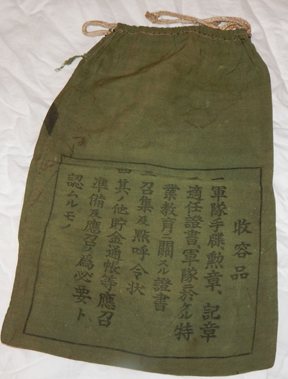 收容品
一軍隊手牒、勲章、記章
一適任證書、軍隊ニ於ケル特
業敎育ニ關スル證書
三召集及點呼ノ令狀
四其ノ他貯金通帳等應召
準備及應召ノ爲必要ト
認ムルモノ